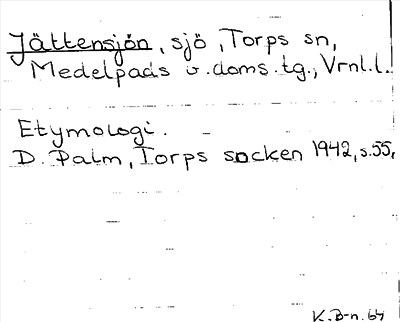 Jättensjön, sjö, Torps sn,
Medelpads v. doms. tg., Vrnl. l.
Etymologi.
D. Palm, Torps socken 1942, s. 55,
K. B-n. 64